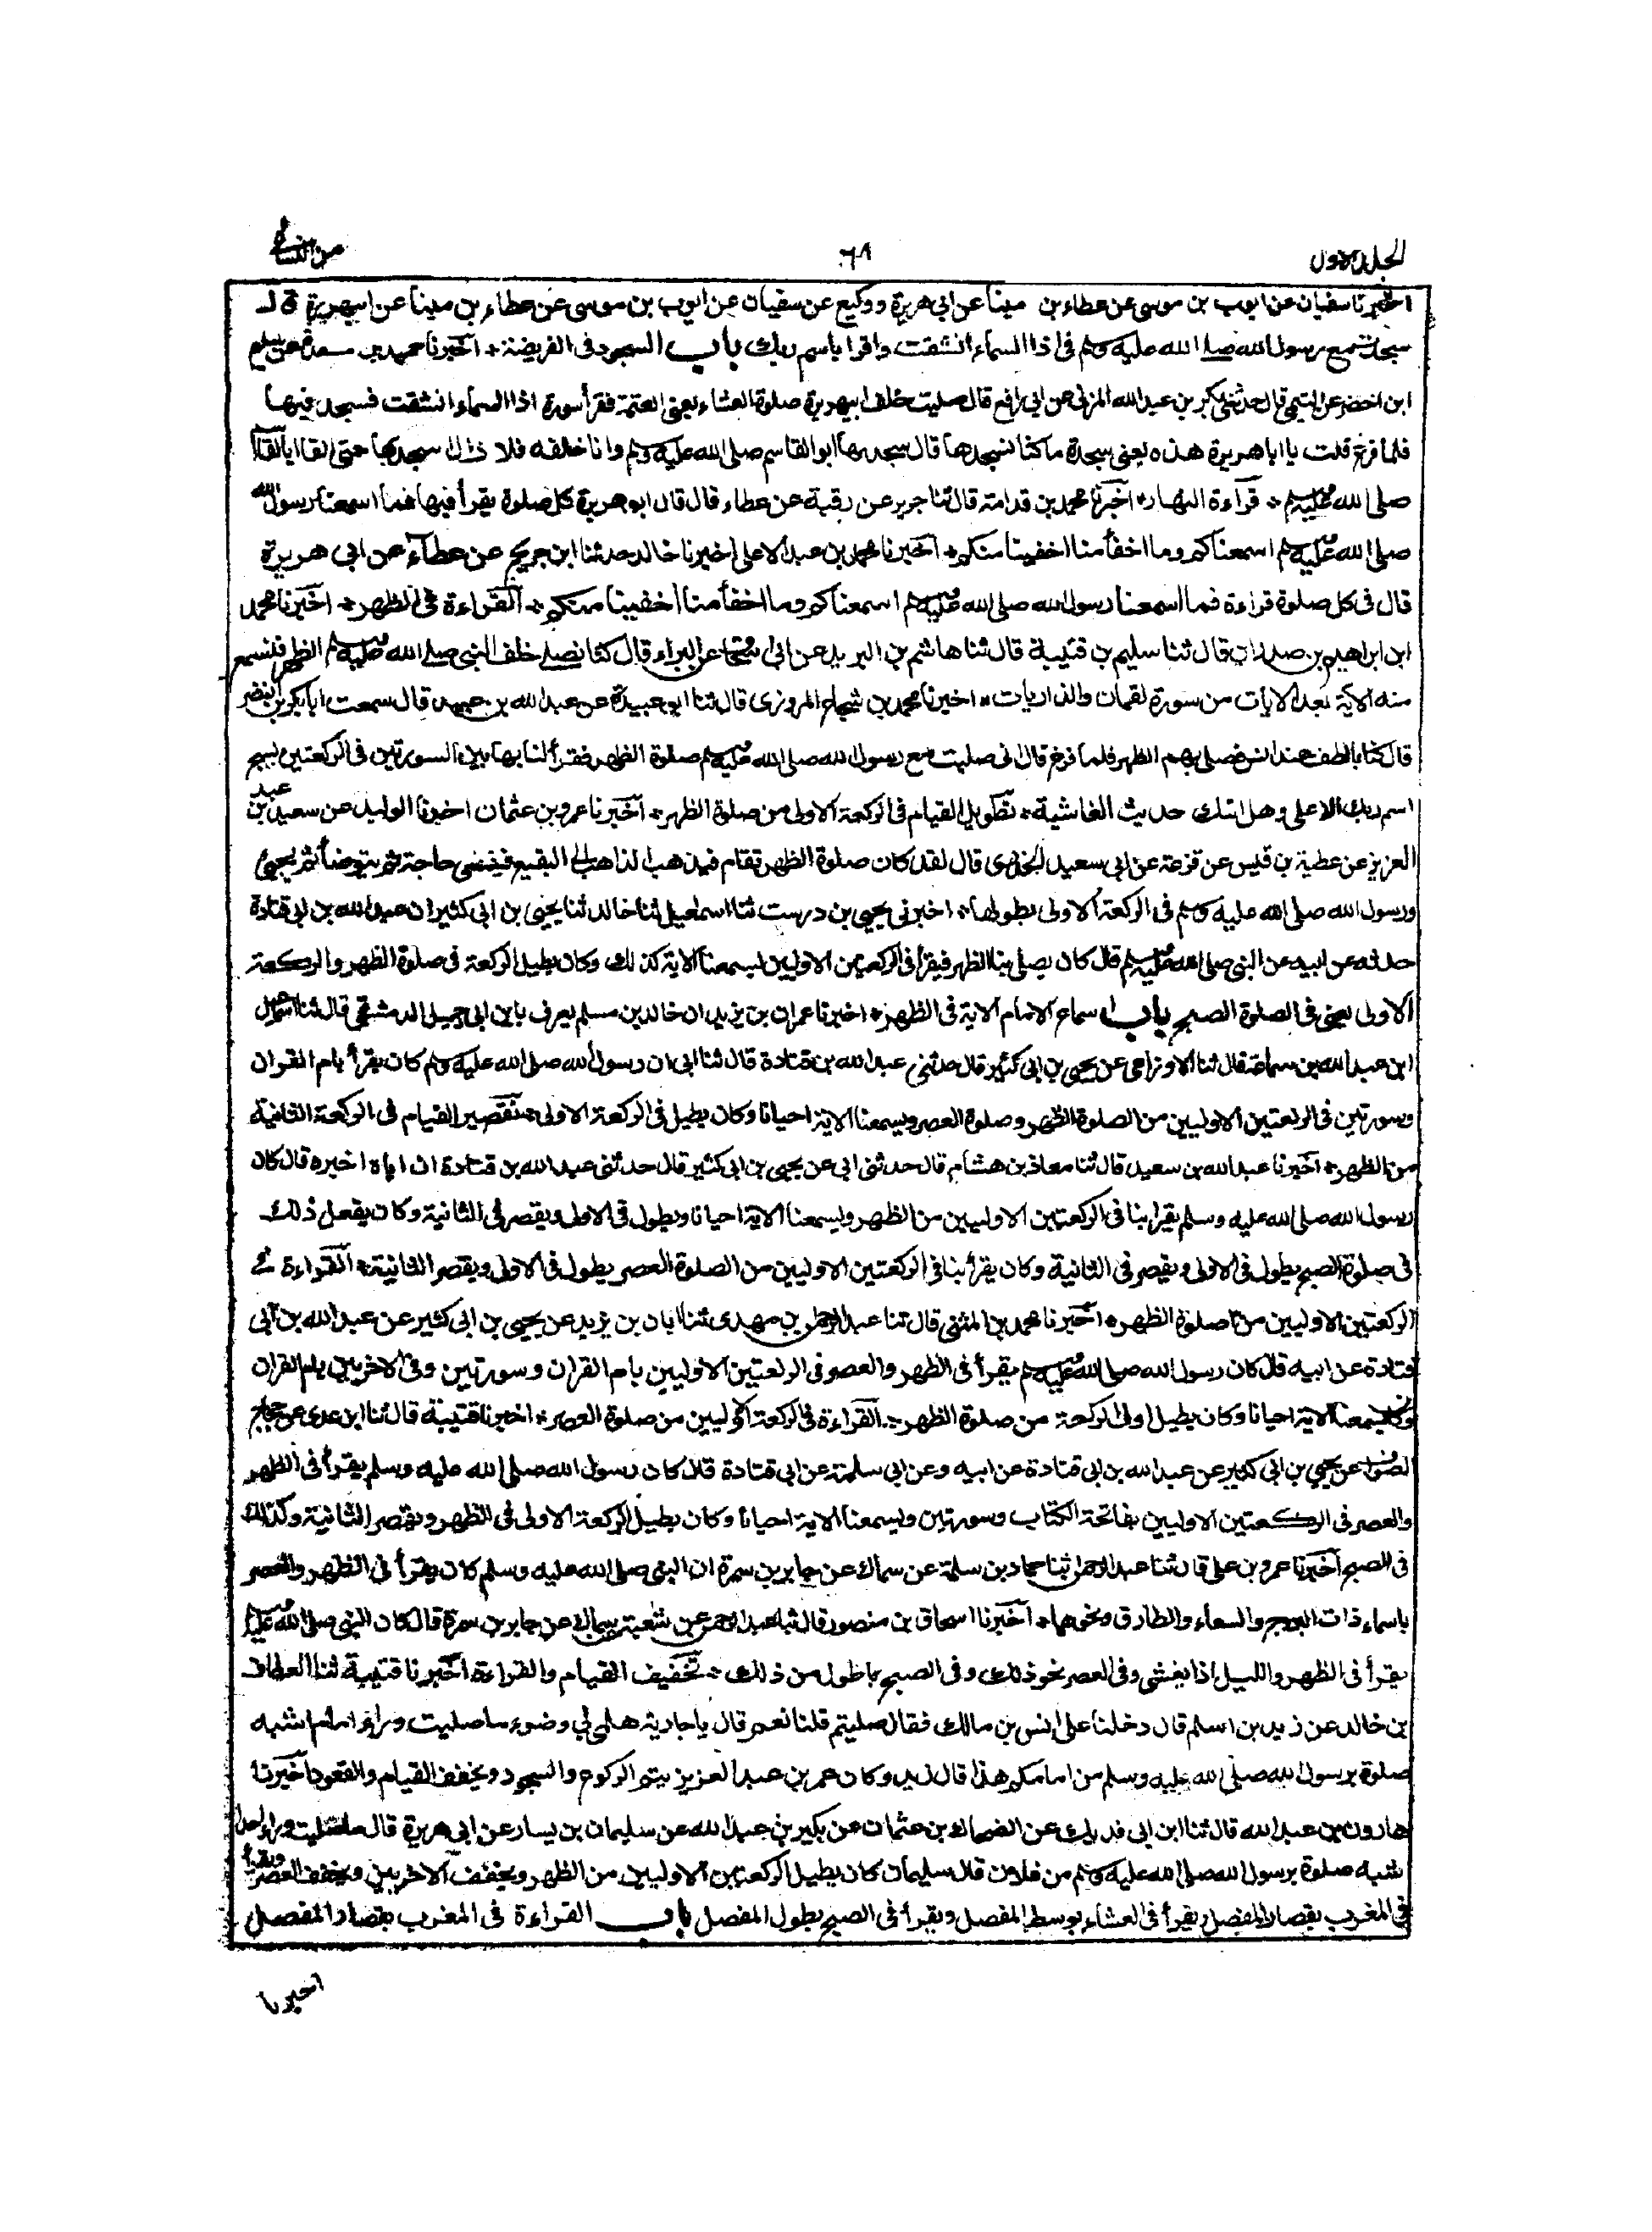 الجلد الاول
٦٨
من النسائى
اخبرنا سفيان عن ايوب بن موسى عن عطاء بن مينا عن ابى هريرة ووكيع عن سفيان عن ايوب بن موسى عن عطاء بن مينا عن ابيهريرة قال
سجدت مع رسول الله صلى الله عليه وسلم فى اذا السماء انشقت واقرا باسم ربك باب السجود فى الفريضة * اخبرنا حميد بن مسعدة عن سليم
ابن اخضر عن التيمى قال حدثنى بكر بن عبد الله المزنى عن ابى رافع قال صليت خلف ابيهريرة صلوة العشاء يعنى العتمة فقرأ سورة اذا السماء انشقت فسجد فيها
فلما فرغ قلت يا ابا هريرة هذه يعنى سجدة ما كنا نسجدها قال سجد بها ابو القاسم صلى الله عليه وسلم وانا خلفه فلا ازال اسجد بها حتى القا ابا القاسم
صلى الله عليه وسلم * قرآءة النهار * اخبرنا محمد بن قدامة قال ثنا جرير عن رقبة عن عطاء قال قال ابو هريرة كل صلوة يقرأ فيها فما اسمعنا رسول الله
صلى الله عليه وسلم اسمعناكم وما اخفأ منا اخفينا منكم * اخبرنا محمد بن عبد الاعلى اخبرنا خالد حدثنا ابن جريج عن عطآء عن ابى هريرة
قال فى كل صلوة قراءة فما اسمعنا رسول الله صلى الله عليه وسلم اسمعناكم وما اخفأ منا اخفينا منكم * القراءة فى الظهر * اخبرنا محمد
ابن ابراهيم بن صدران قال ثنا سليم بن قتيبة قال ثنا هاشم بن البريد عن ابى اسحاق عن البراء قال كنا نصلى خلف النبى صلى الله عليه وسلم الظهر فنسمع
منه الآية بعد الايات من سورة لقمان والذاريات * اخبرنا محمد بن شجاع المروزى قال ثنا ابو عبيدة عن عبد الله بن عبيد قال سمعت ابا بكر بن النضر
قال كنا بالطف عند انس فصلى بهم الظهر فلما فرغ قال انى صليت مع رسول الله صلى الله عليه وسلم صلوة الظهر فقرأ لنا بهاتين السورتين فى الركعتين بسبح
اسم ربك الاعلى وهل اتىك حديث الغاشية * تطويل القيام فى الركعة الاولى من صلوة الظهر * اخبرنا عمرو بن عثمان اخبرنا الوليد عن سعيد بن عبد
العزيز عن عطية بن قيس عن قزعة عن ابى سعيد الخدرى قال لقد كان صلوة الظهر تقام فيذهب الذاهب الى البقيع فيقضى حاجته ثم يتوضأ ثم يجيئ
ورسول الله صلى الله عليه وسلم فى الركعة الاولى يطولها * اخبرنى يحيى بن درست ثنا اسمعيل ثنا خالد ثنا يحيى بن ابى كثير ان عبد الله بن ابى قتادة
حدثه عن ابيه عن النبى صلى الله عليه وسلم قال كان يصلى بنا الظهر فيقرأ فى الركعتين الاوليين ليسمعنا الاية كذلك وكان يطيل الركعة فى صلوة الظهر والركعة
الاولى يعنى فى الصلوة الصبح باب اسماع الامام الاية فى الظهر * اخبرنا عمران بن يزيد ان خالد بن مسلم يعرف بابن ابى جميل الدمشقى قال ثنا اسمعيل
ابن عبد الله بن سماعة قال ثنا الاوزاعى عن يحيى بن ابى كثير قال حدثنى عبد الله بن قتادة قال ثنا ابى ان رسول الله صلى الله عليه وسلم كان يقرأ بام القران
وسورتين فى الركعتين الاوليين من الصلوة الظهر وصلوة العصر ويسمعنا الاية احيانا وكان يطيل فى الركعة الاولى * تقصير القيام فى الركعة الثانية
من الظهر * اخبرنا عبيد الله بن سعيد قال ثنا معاذ بن هشام قال حدثنى ابى عن يحيى بن ابى كثير قال حدثنى عبد الله بن قتادة ان اباه اخبره قال كان
رسول الله صلى الله عليه وسلم يقرا بنا فى الركعتين الاوليين من الظهر ويسمعنا الاية احيانا ويطول فى الاولى ويقصر فى الثانية وكان يفعل ذلك
فى صلوة الصبح يطول فى الاولى ويقصر فى الثانية وكان يقرأ بنا فى الركعتين الاوليين من الصلوة العصر يطول فى الاولى ويقصر الثانية * القراءة فى
الركعتين الاوليين من صلوة الظهر * اخبرنا محمد بن المثنى قال ثنا عبد الرحمن بن مهدى ثنا ابان بن يزيد عن يحيى بن ابى كثير عن عبد الله بن ابى
قتادة عن ابيه قال كان رسول الله صلى الله عليه وسلم يقرأ فى الظهر والعصر فى الركعتين الاوليين بام القران وسورتين وفى الاخريين بام القران
وكان يسمعنا الاية احيانا وكان يطيل اولى الركعة من صلوة الظهر * القراءة فى الركعة الاوليين من صلوة العصر * اخبرنا قتيبة قال ثنا ابن عدى عن حجاج
الصواف عن يحيى بن ابى كثير عن عبد الله بن ابى قتادة عن ابيه وعن ابى سلمة عن ابى قتادة قال كان رسول الله صلى الله عليه وسلم يقرأ فى الظهر
والعصر فى الركعتين الاوليين بفاتحة الكتاب وسورتين ويسمعنا الاية احيانا وكان يطيل الركعة الاولى فى الظهر ويقصر الثانية وكذلك
فى الصبح اخبرنا عمرو بن على قال ثنا عبد الرحمن ثنا حماد بن سلمة عن سماك عن جابر بن سمرة ان النبى صلى الله عليه وسلم كان يقرأ فى الظهر والعصر
باسماء ذات البروج والسماء والطارق ونحوهما * اخبرنا اسحاق بن منصور قال ثنا عبد الرحمن عن شعبة عن سماك عن جابر بن سمرة قال كان النبى صلى الله عليه وسلم
يقرأ فى الظهر والليل اذا يغشى وفى العصر نحو ذلك وفى الصبح باطول من ذلك * تخفيف القيام والقراءة اخبرنا قتيبة ثنا العطاف
بن خالد عن زيد بن اسلم قال دخلنا على انس بن مالك فقال صليتم قلنا نعم قال يا جارية هلمى لى وضوء ما صليت وراء امام اشبه
صلوة برسول الله صلى الله عليه وسلم من امامكم هذا قال زيد وكان عمر بن عبد العزيز يتم الركوع والسجود ويخفف القيام والقعود اخبرنا
هارون بن عبد الله قال ثنا ابن ابى فديك عن الضحاك بن عثمان عن بكير بن عبد الله عن سليمان بن يسار عن ابى هريرة قال ما صليت وراء احد
شبه صلوة برسول الله صلى الله عليه وسلم من فلان قال سليمان كان يطيل الركعتين الاوليين من الظهر ويخفف الاخريين ويخفف العصر ويقرأ
فى المغرب بقصار المفصل ويقرأ فى العشاء بوسط المفصل ويقرأ فى الصبح بطول المفصل باب القراءة فى المغرب بقصار المفصل
اخبرنا